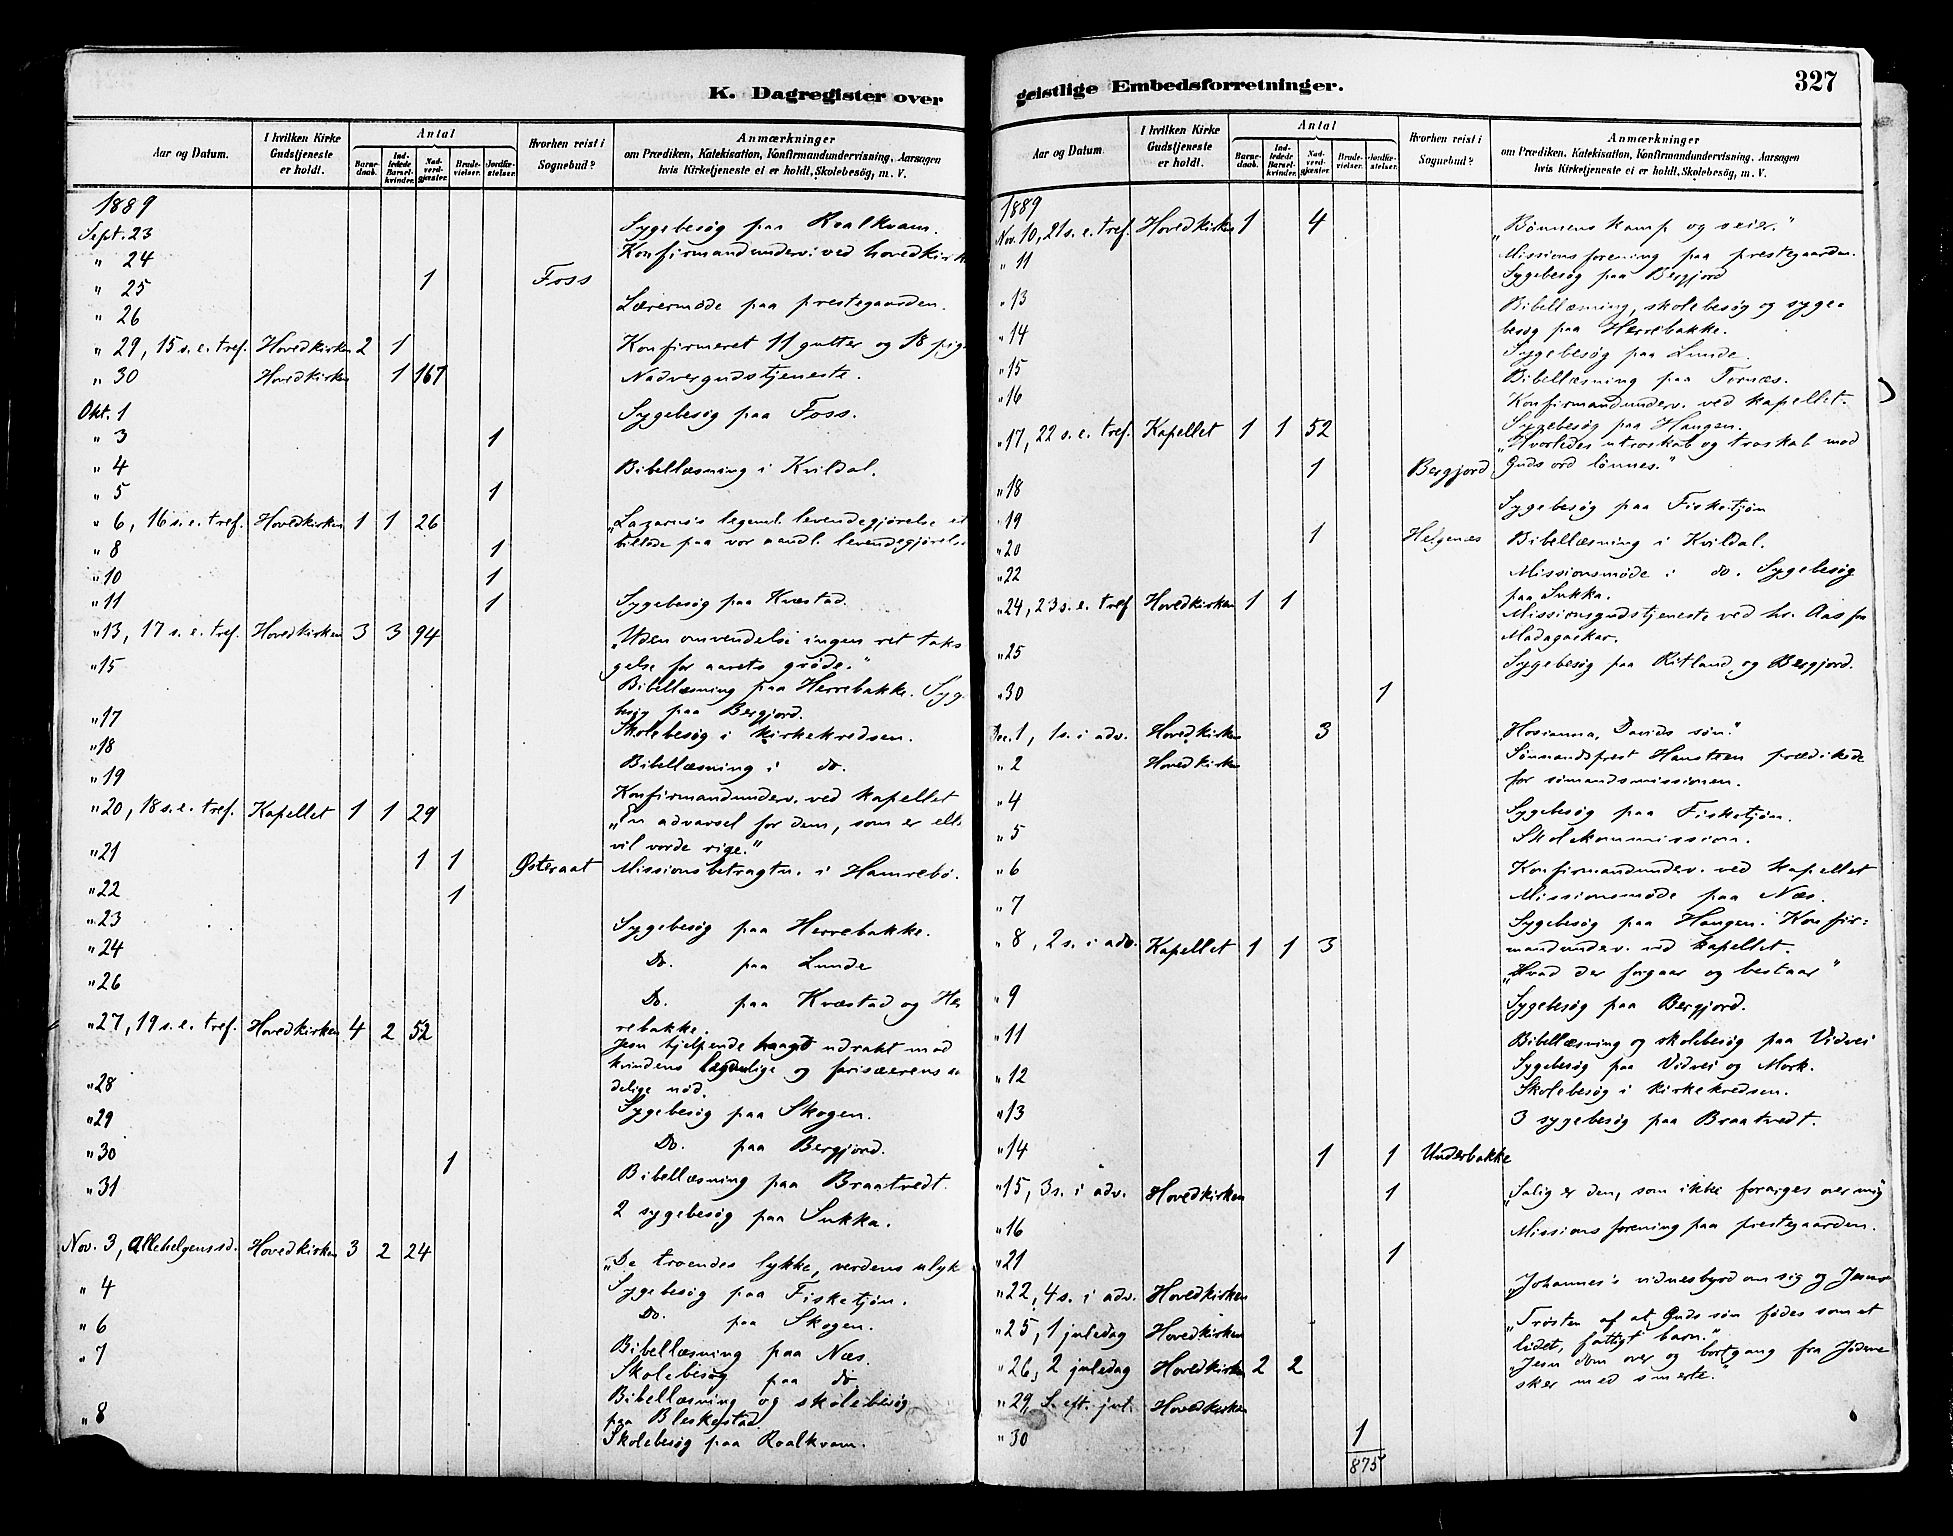 K. Dagregister over
Aar og Datum. I hvilken Kirke Gudstjeneste er holdt. Antal Barnedaab. Indledede Barselkvinder. Nadverdgjæster. Brudevielser. Jordfæstelser. Hvorhen reist i Sognebud? Anmærkninger om Prædiken, Katekisation, Konfirmandundervisning, Aarsagen hvis Kirketjeneste ei er holdt, Skolebesög, m. V.
1889
Sept. 23 Sygebesøg paa Roalkvam.
" 24 Konfirmandunderv. ved hovedkirk
" 25 1 Foss
" 26 Lærermøde paa prestegaarden.
" 29, 15 s. e. tref. Hovedkirken 2 1 Konfirmeret 11 gutter og 18 pig
" 30 Hovedkirken 1 167 Nadvergudstjeneste.
Okt. 1 Sygebesøg paa Foss.
" 3 1
" 4 Bibellæsning i Kvildal.
" 5 1
" 6, 16 s. e. tref. Hovedkirken 1 1 26 „Lazarus's legeml. levendegjørelse et
" 8 1 billede paa vor aandl. levendegjørelse
" 10 1
" 11 1 Sygebesøg paa Kvæstad.
" 13, 17 s. e. tref. Hovedkirken 3 3 94 „Uden omvendelse ingen ret tak-
" 15 gelse for aarets grøde."
Bibellæsning paa Herrebakke. Syge
" 17 besøg paa Bergjord.
" 18 Skolebesøg i kirkekredsen.
" 19 Bibellæsning i do.
Konfirmandunderv. ved kapellet
" 20, 18 s. e. tref. Kapellet 1 1 29 „En advarsel for dem, som er ell.
vil vorde rige."
" 21 1 1 Østeraat Missionsbetragtn. i Hamrebø.
" 22 1
" 23 Sygebesøg paa Herrebakke.
" 24 Do. paa Lunde
" 26 Do. paa Kvæstad og Her
" 27, 19 s. e. tref. Hovedkirken 4 2 52 rebakke.
Jesu hjelpende haand udrakt mod
" 28 kvindens legemlige og farisæerens aa
delige nød.
" 29 Sygebesøg paa Skogen.
" 30 1 Do. paa Bergjord.
" 31 Bibellæsning paa Braatvedt.
2 sygebesøg paa Sukka.
Nov. 3, Allehelgenssd. Hovedkirken 3 2 24 „De troendes lykke, verdens ulyk
" 4 Sygebesøg paa Fisketjøn.
" 6 Do. paa Skogen.
" 7 Bibellæsning paa Næs.
Skolebesøg paa do
" 8 Bibellæsning og skolebesøg
paa Bleskestad
Skolebesøg paa Roalkvam.
geistlige Embedsforretninger. 327
Aar og Datum. I hvilken Kirke Gudstjeneste er holdt. Antal Barnedaab. Indledede Barselkvinder. Nadverdgjæster. Brudevielser. Jordfæstelser. Hvorhen reist i Sognebud? Anmærkninger om Prædiken, Katekisation, Konfirmandundervisning, Aarsagen hvis Kirketjeneste ei er holdt, Skolebesög, m. V.
1889
Nov. 10, 21 s. e. tref. Hovedkirken 1 4 „Bønnens kamp og seier."
" 11 Missionsforening paa prestegaarden.
Sygebesøg paa Bergjord
" 13 Bibellæsning, skolebesøg og syge-
" 14 besøg paa Herrebakke.
Sygebesøg paa Lunde.
" 15 Bibellæsning paa Tornæs.
" 16 Konfirmandunderv. ved kapellet.
Sygebesøg paa Haugen.
" 17, 22 s. e. tref. Kapellet 1 1 52 „Hvorledes utroskab og troskab mod
" 18 1 Bergjord Guds ord lønnes."
" 19 Sygebesøg paa Fisketjøn
" 20 1 Helgenæs Bibellæsning i Kvildal.
" 22 Missionsmøde i do. Sygebesøg
paa Sukka.
" 24, 23 s. e. tref Hovedkirken 1 1 Missionsgudstjeneste ved hr. Aas fra
Madagaskar.
" 25 Sygebesøg paa Ritland og Bergjord.
" 30 1
Dec. 1, 1 s. i adv. Hovedkirken 3 „Hosianna, Davids søn."
" 2 Hovedkirken Sømandsprest Hansteen prædikede
for sømandsmissionen.
" 4 Sygebesøg paa Fisketjøn.
" 5 Skolekommission.
" 6 Konfirmandunderv. ved kapellet
" 7 Missionsmøde paa Næs.
Sygebesøg paa Haugen. Konfir-
" 8, 2 s. i adv. Kapellet 1 1 3 mandunderv. ved kapellet.
„Hvad der forgaar og bestaar"
" 9 Sygebesøg paa Bergjord.
" 11 Bibellæsning og skolebesøg paa Vidvei
" 12 Sygebesøg paa Vidvei og Mork.
Skolebesøg i kirkekredsen.
" 13 3 sygebesøg paa Braatvedt.
" 14 1 1 Underbakke
" 15, 3 s. i adv. Hovedkirken 1 „Salig er den, som ikke forarges over mig
" 16 Missionsforening paa prestegaarden.
" 21 1
" 22, 4 s. i adv. Hovedkirken „Johannes's vidnesbyrd om sig og Jesus
" 25, 1 juledag Hovedkirken „Trøsten af at Guds søn fødes som et
lidet, fattigt barn."
" 26, 2 juledag Hovedkirken 2 2 „Jesu dom over og bortgang fra Jøderne
sker med smerte."
" 29, S. eft. jul. Hovedkirken
" 30 1
875